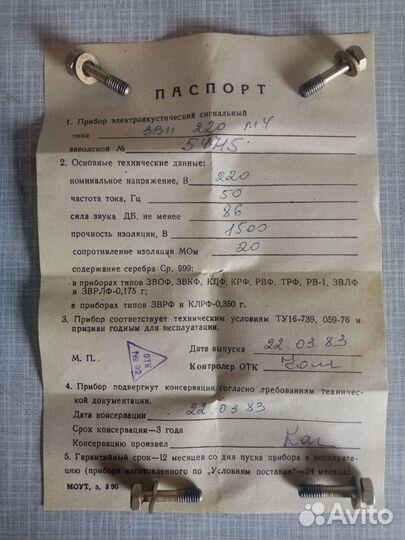 ПАСПОРТ
1. Прибор электроакустический сигнальный
типа ЗВП 220 МЧ
заводской №
2. Основные технические данные:
номинальное напряжение, В 220
частота тока, Гц 50
сила звука ДБ, не менее 86
прочность изоляции, В 1500
сопротивление изоляции МОм 20
содержание серебра Ср, 999:
в приборах типов ЗВОФ, ЗВКФ, КДФ, КРФ, РВФ, ТРФ, РВ-1, ЗВЛФ
и ЗВРЛФ-0,175 г;
в приборах типов ЗВРФ и КЛРФ-0,350 г.
3. Прибор соответствует техническим условиям ТУ16-739, 059-76 и
признан годным для эксплуатации.
Дата выпуска 22.03.83
М. П.
ОТК
Контролер ОТК
4. Прибор подвергнут консервации согласно требованиям техничес-
кой документации.
Дата консервации 22.03.83
Срок консервации—3 года
Консервацию произвел
5. Гарантийный срок—12 месяцев со дня пуска прибора в эксплуата-
цию (прибора изготовленного по „Условиям поставки"—24 месяца).
МОУТ, з. 890
Avito